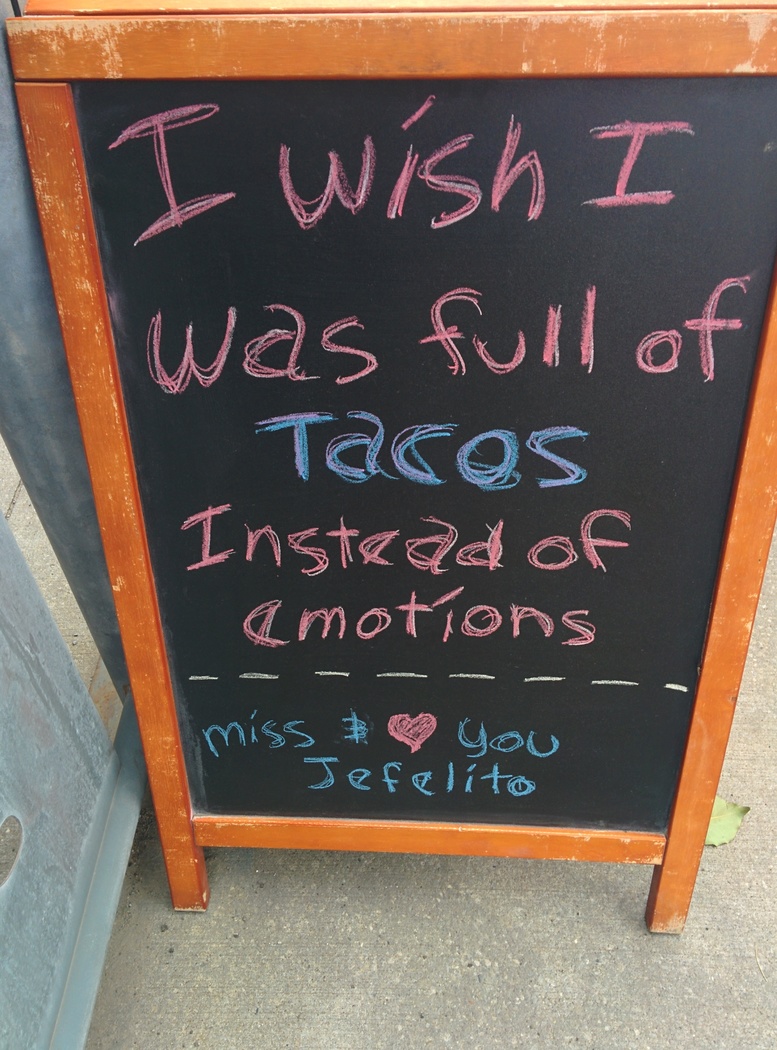 I wish I
was full of
Tacos
Instead of
emotions
miss & ♥ you
Jefelito